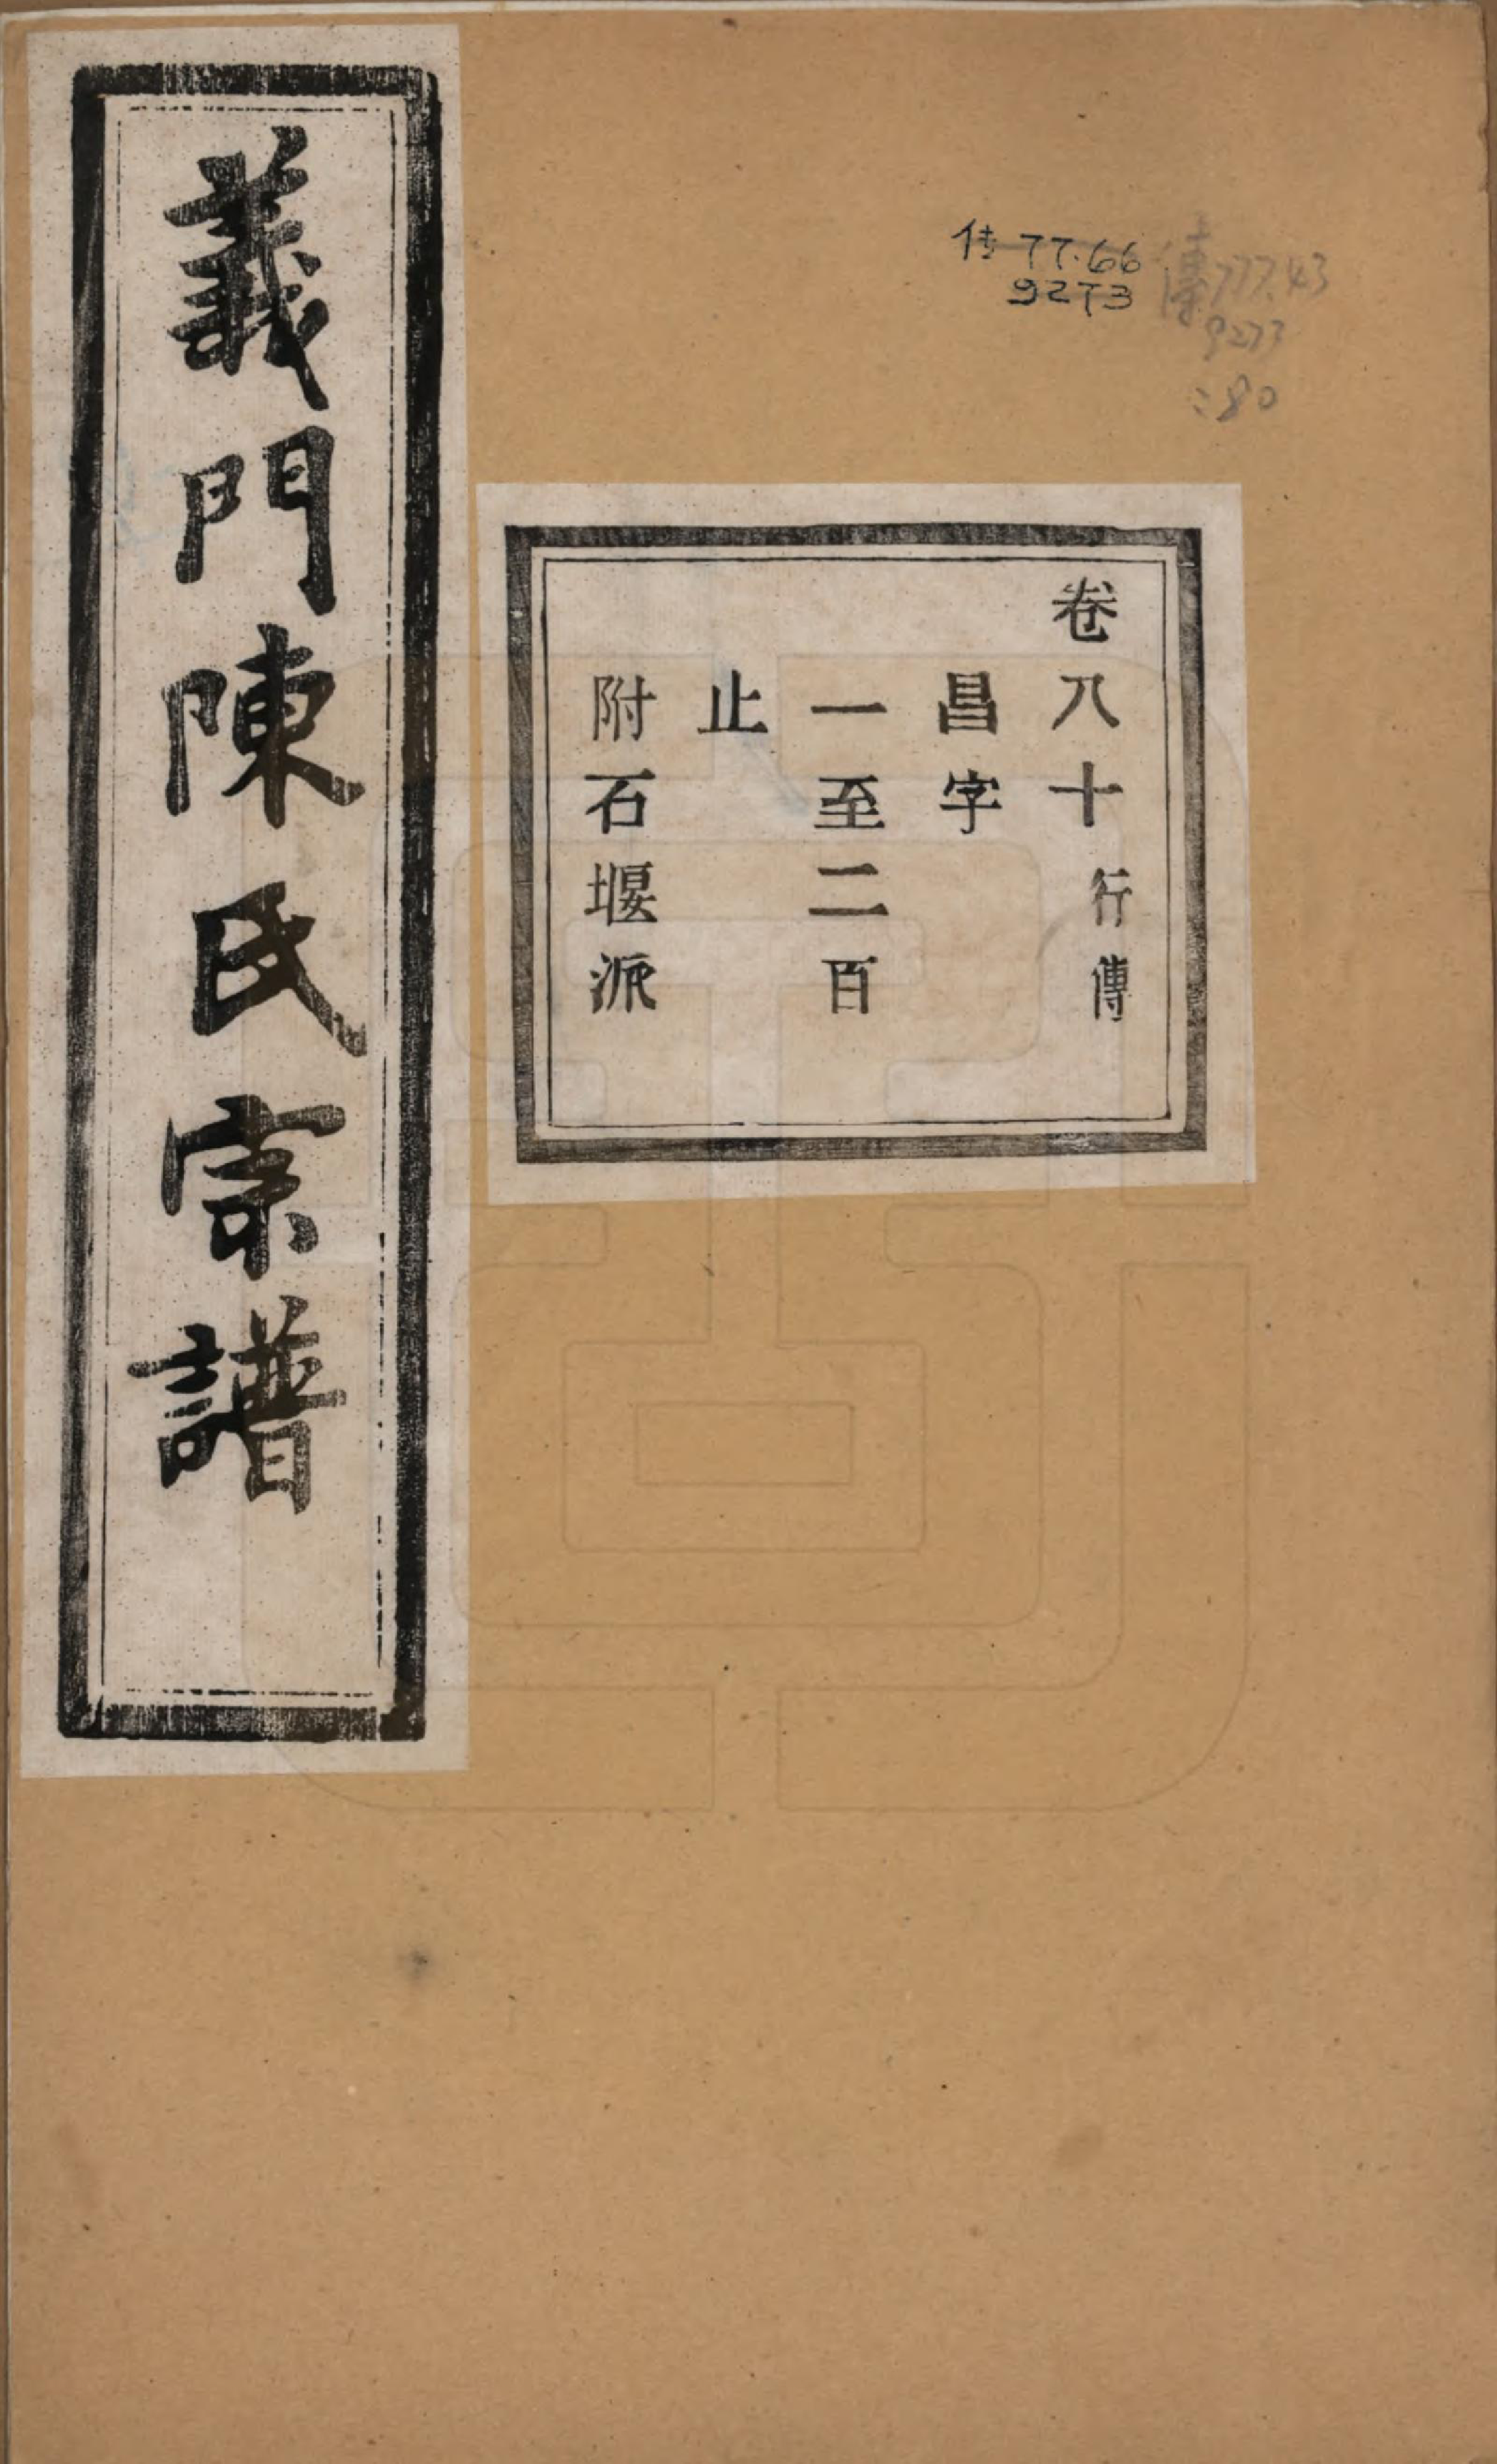 義門陳氏宗譜
卷八十行傳
昌字
一至二百
止
附石堰派
传 77.66
9273
傳777.43
9273
:80